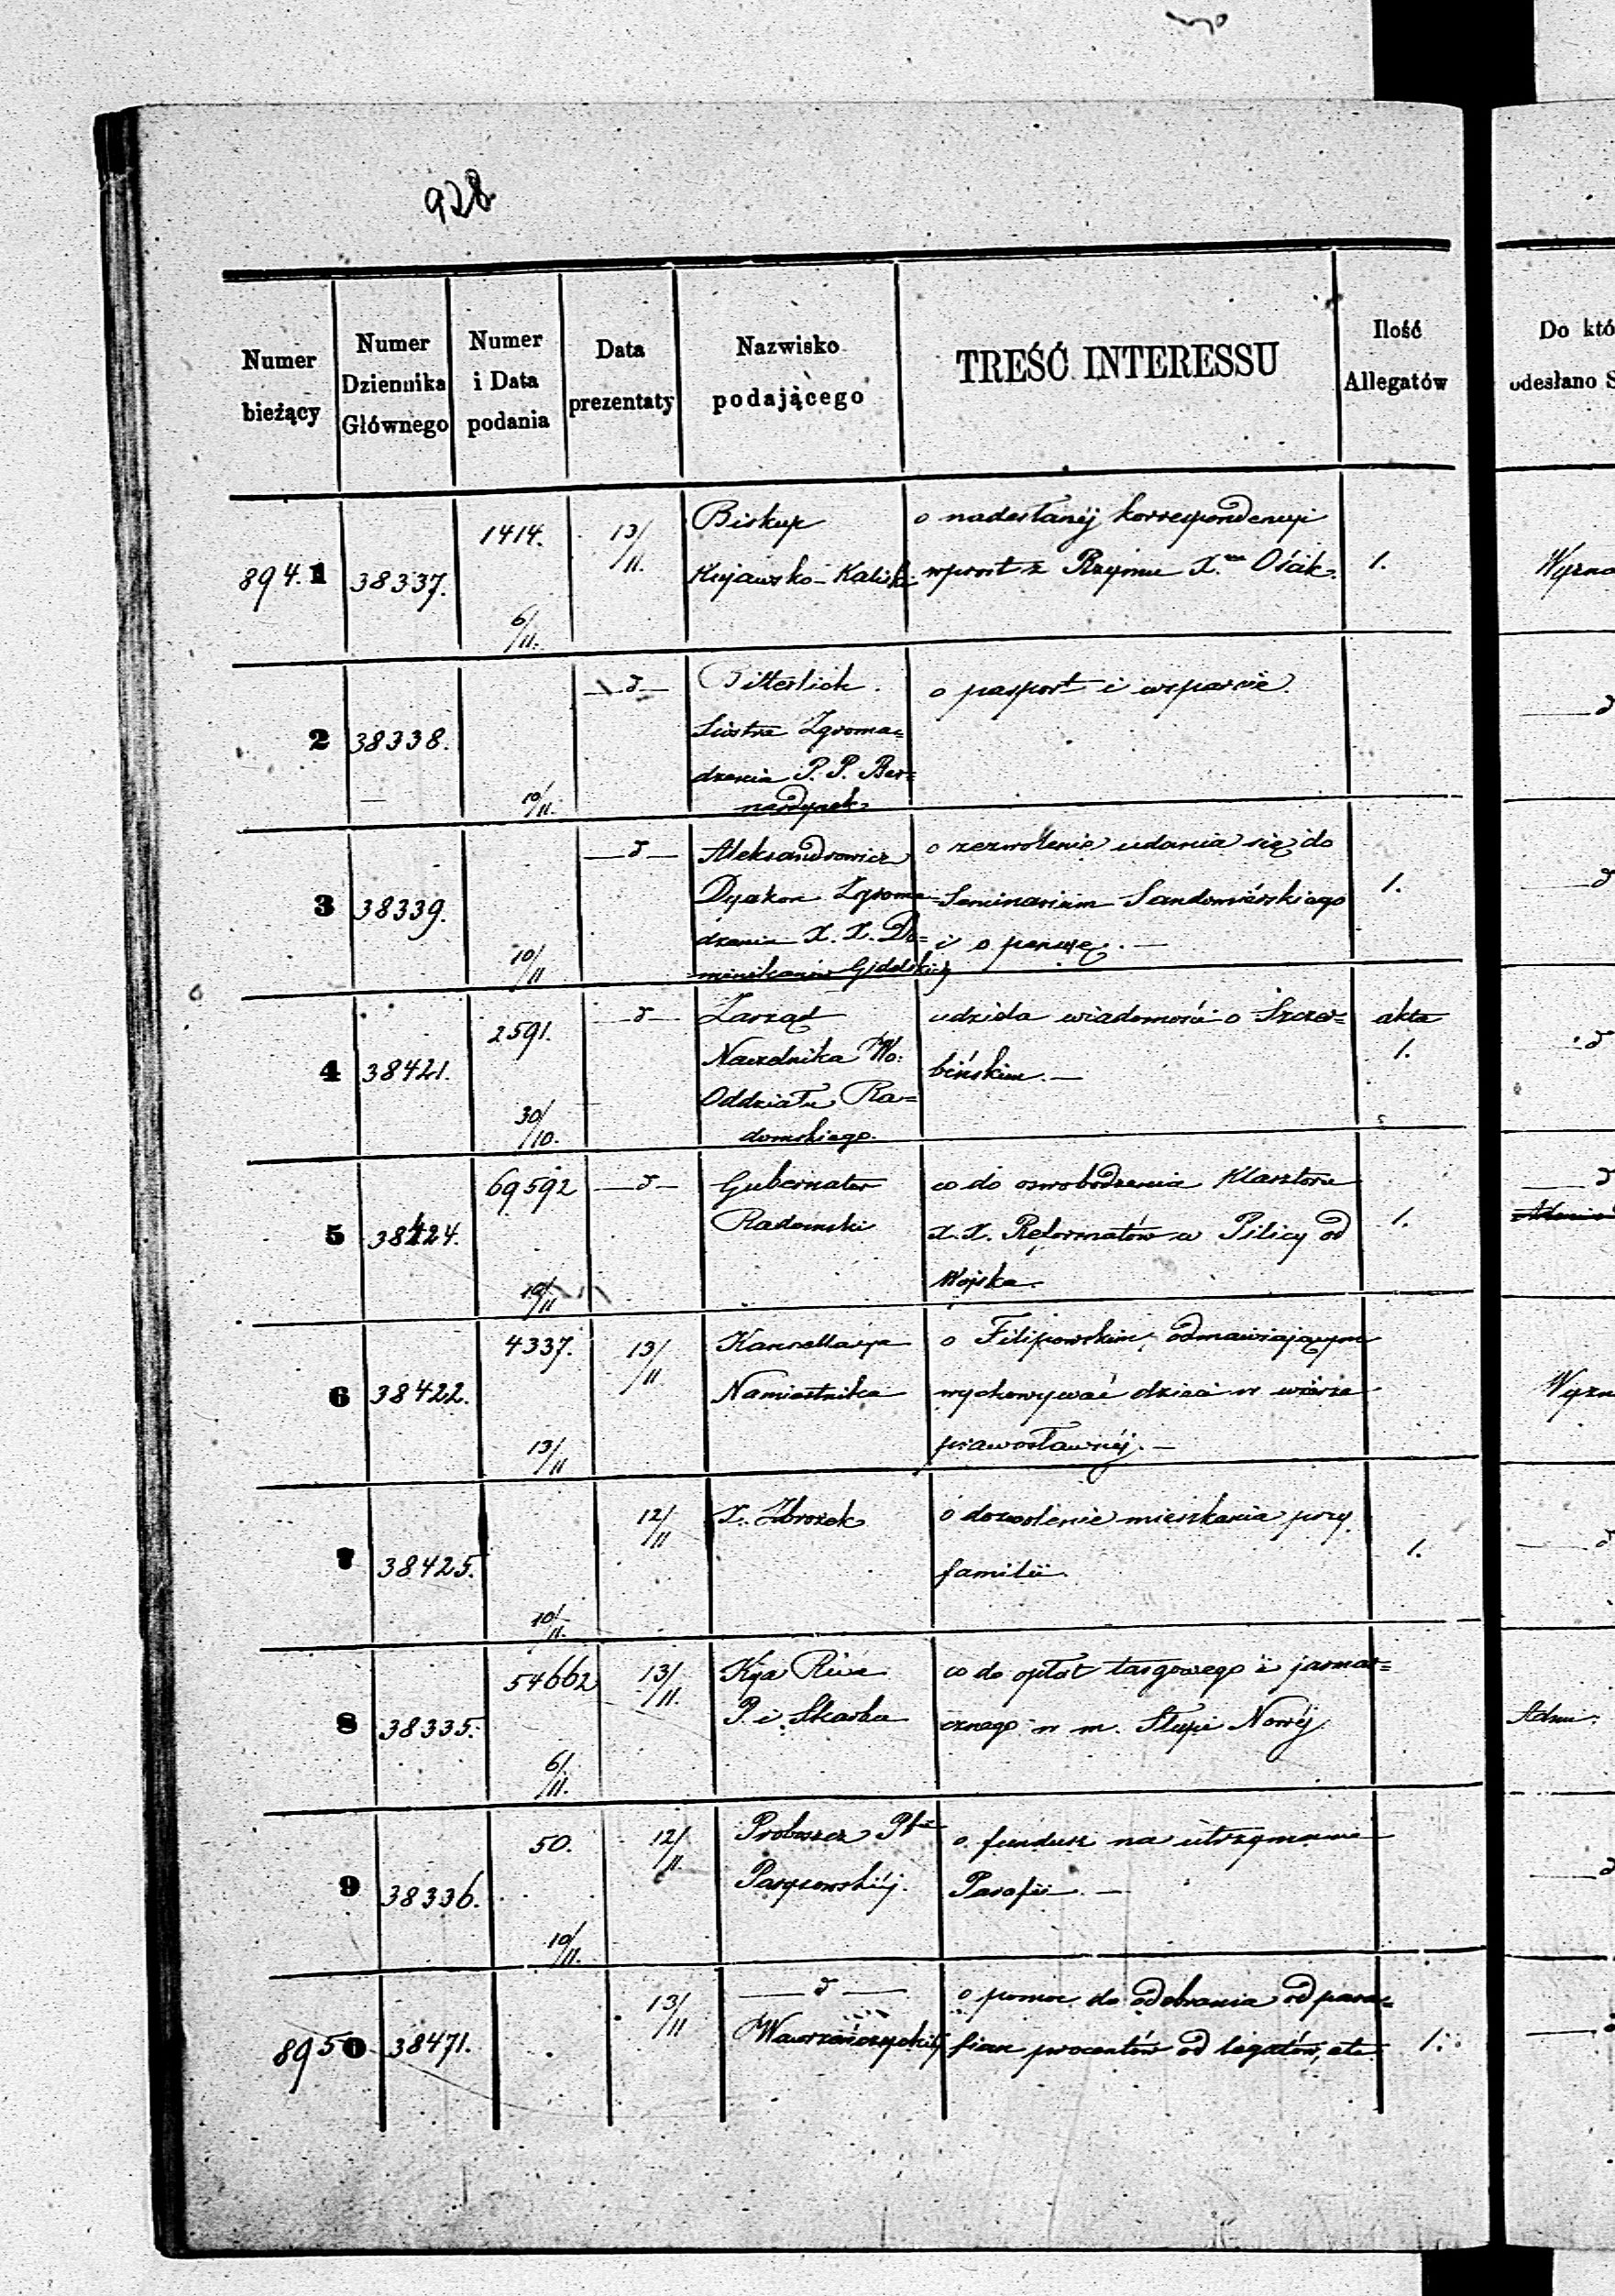 928
Numer bieżący
Numer Dziennika Głównego
Numer i Data podania
Data prezentaty
Nazwisko podającego
TREŚĆ INTERESSU
Ilość Allegatów
Do któ
odesłano S
8941 38337. 1414. 6/11. 13/11. Biskup
Kujawsko-Kaliski
o nadesłanéj korrespondencyi
wprost z Rzymu X. Osiak.
1.
2 38338. 10/11. —d— Bitterlich.
Siostra Zgroma=
dzenia P. P. Ber=
nardynek
o pasport i wsparcie.
—d
3 38339. 10/11 —d— Aleksandrowicz
Dyakon Zgroma=
dzenia X. X. Do=
minikanów Gidelskich
o zezwolenie udania się do
Seminarium Sandomiérskiego
i o pensyę. —
1.
—d
4 38421. 2591. 30/10. —d— Zarząd
Naczelnika Wo:
Oddziału Ra=
domskiego.
udziela wiadomość o Szczer=
bińskim. —
akta
1.
d
5 38424. 69592 10/11 —d— Gubernator
Radomski
co do oswobodzenia Klasztoru
X. X. Reformatów w Pilicy od
Wojska.
1.
—d
6 38422. 4337. 13/11 13/11 Kancellarya
Namiestnika
o Filipowskim, odmawiającym
wychowywać dzieci w wierze
prawosławnéj. —
7 38425. 10/11. 12/11 X. Zbrożek
o dozwolenie mieszkania przy
familii.
1.
—d
8 38335. 54662 6/11. 13/11. Kya
P. i Skarbu
co do opłat targowego i jarmar=
cznego w m. Słupi Nowéj.
Adm:
9 38336. 50. 10/11. 12/11. Proboszcz
o fundusz na utrzymanie
Parafii. —
—d
8950 38471. 13/11 —d—
Wawrzeńczyckiéj
o pomoc do odebrania od para=
fian procentów od legatów, etc
1.